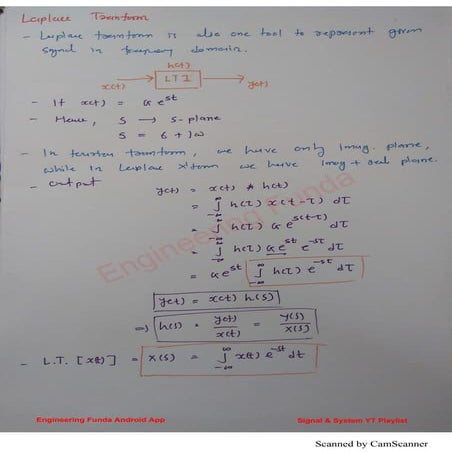 Laplace Transform
- Laplace transform is also one tool to represent given
signal in frequency domain.
h(t)
x(t) → LTI → y(t)
- If x(t) = G e^st
- Hence, S → S-plane
S = 6 + jω
- In fourier transform, we have only Imag. plane,
while in Laplace x'torm we have Imag + real plane.
- output y(t) = x(t) * h(t)
= ∫_-∞^∞ h(τ) x(t-τ) dτ
= ∫_-∞^∞ h(τ) G e^s(t-τ) dτ
= ∫_-∞^∞ h(τ) G e^st e^-sτ dτ
= G e^st ∫_-∞^∞ h(τ) e^-sτ dτ
y(t) = x(t) h(s)
=> h(s) = y(t)/x(t) = Y(s)/X(s)
- L.T. [x(t)] = X(s) = ∫_-∞^∞ x(t) e^-st dt
Engineering Funda
Engineering Funda Android App
Signal & System YT Playlist
Scanned by CamScanner